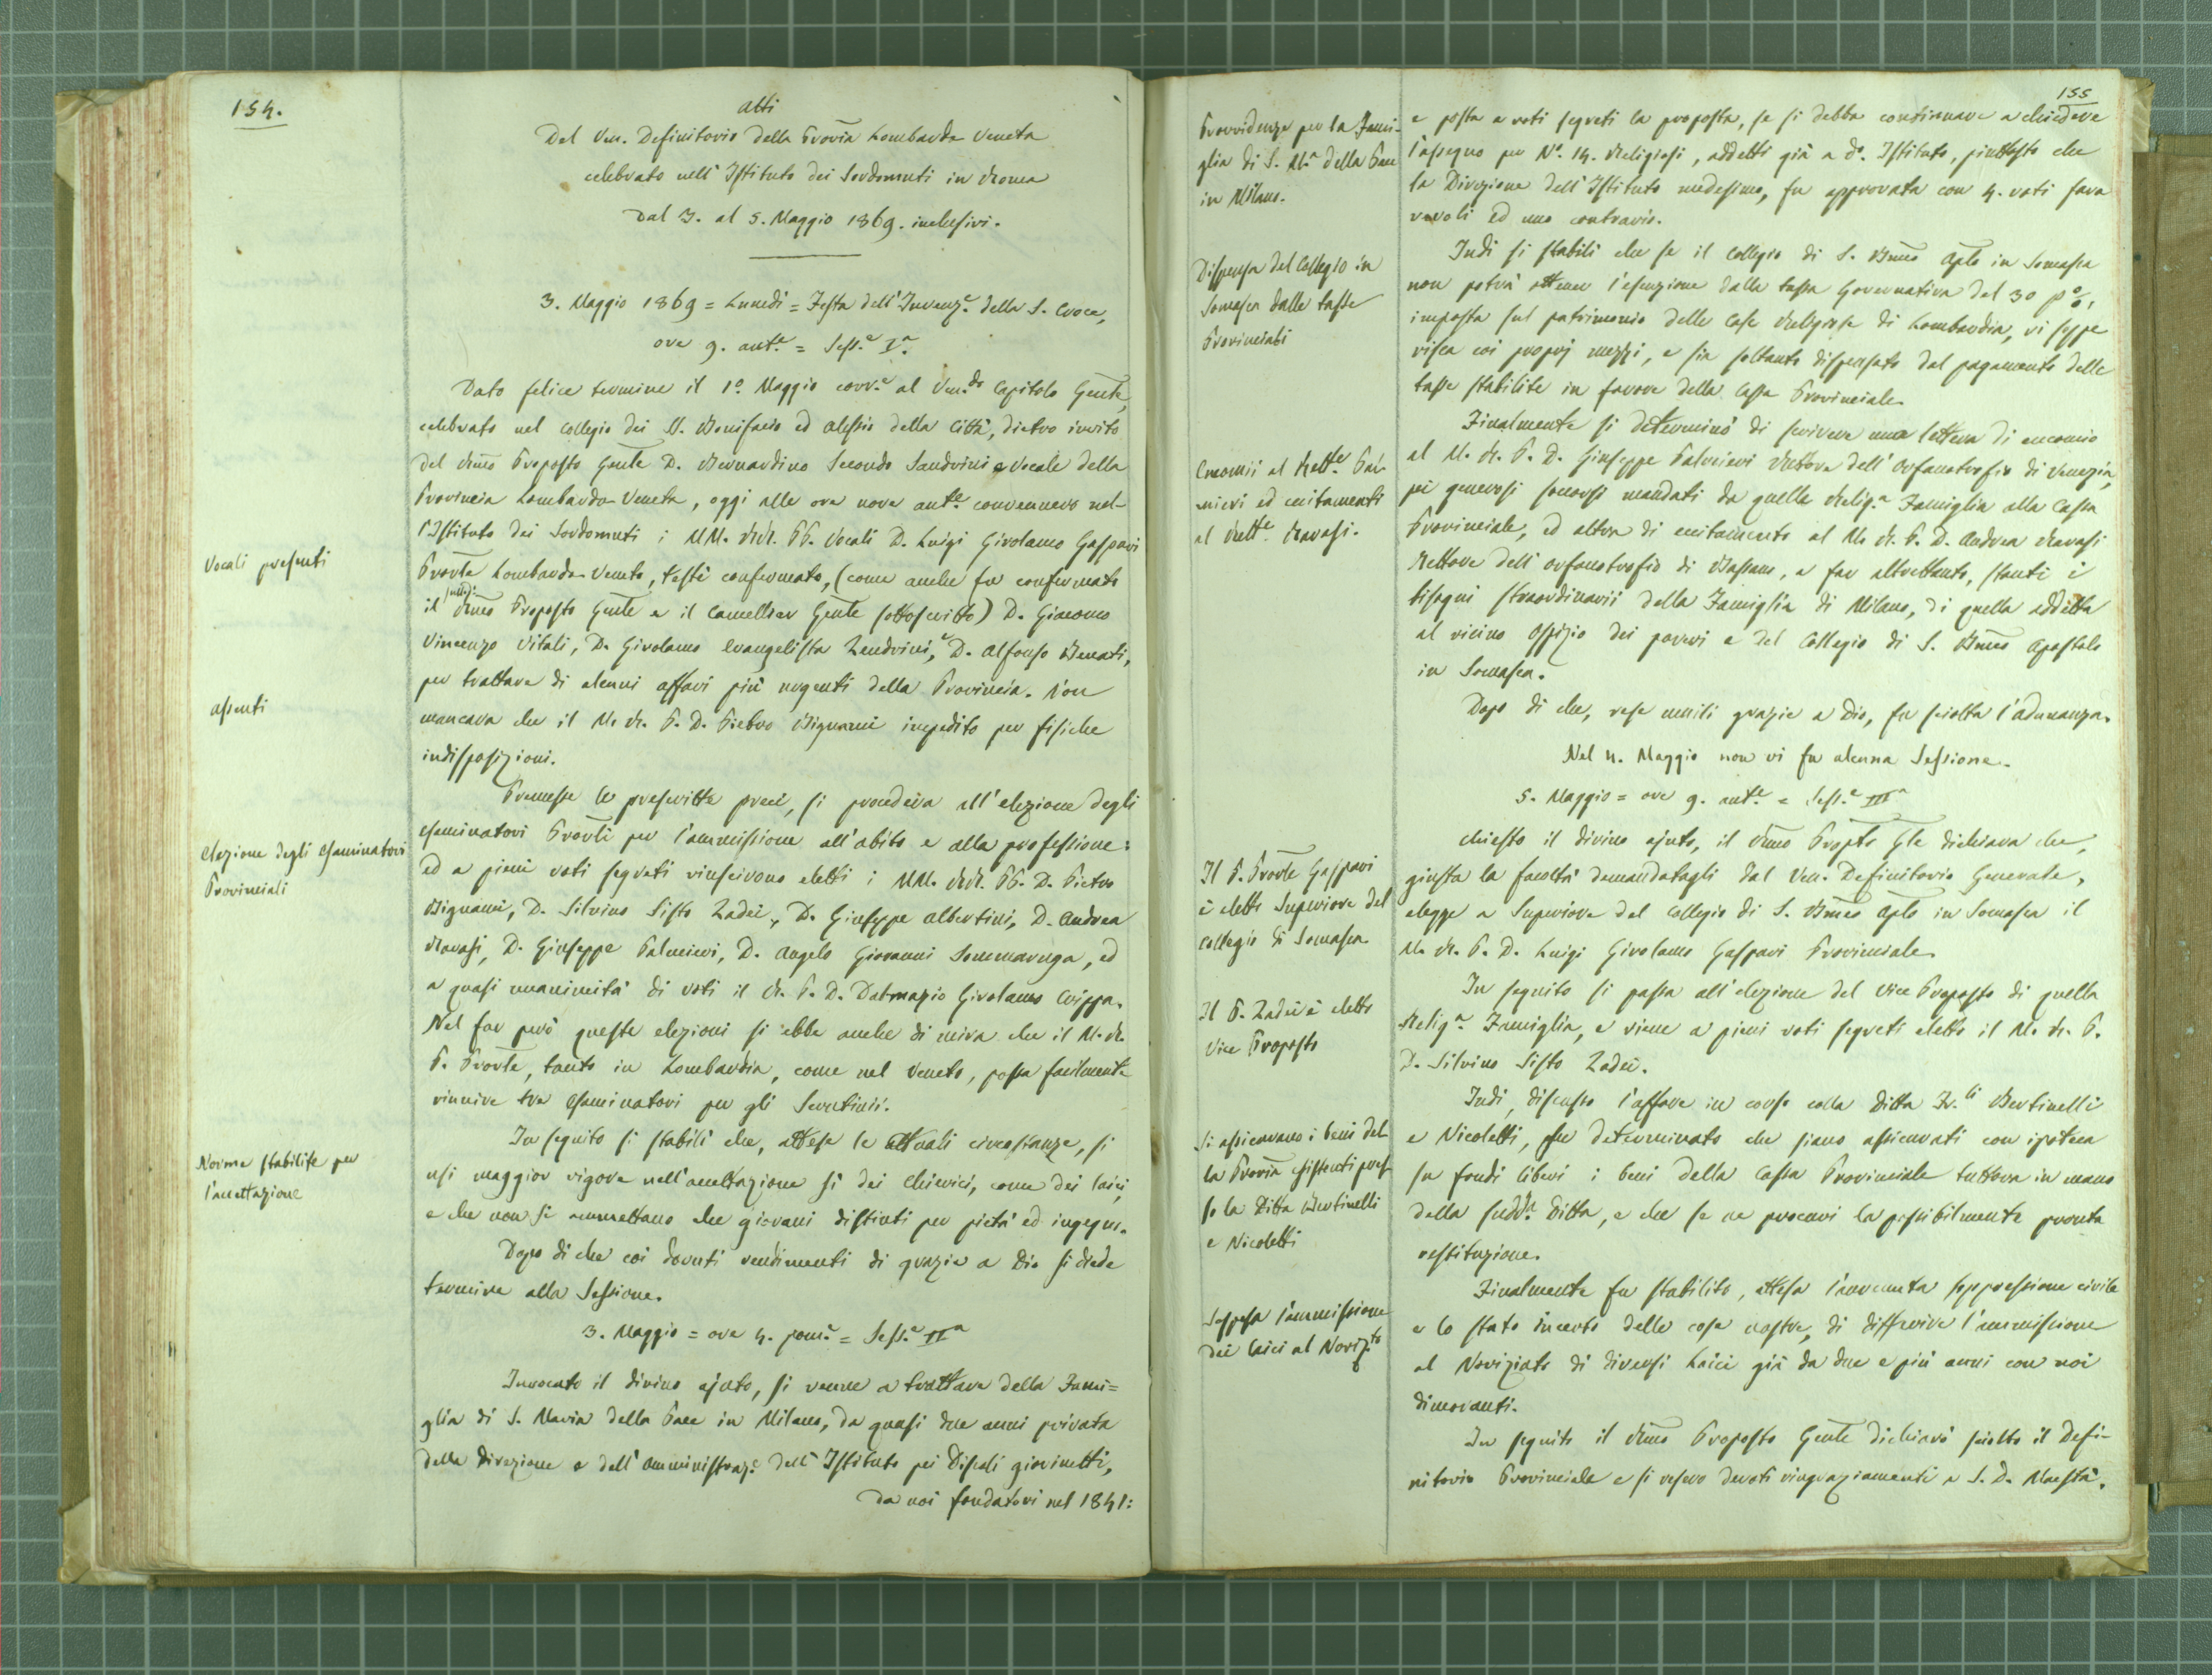 154.
Atti
Del Ven. Definitorio della Provia Lombardo Veneta
celebrato nell'Istituto dei Sordomuti in Roma
Dal 3. al 5. Maggio 1869. inclusivi.
3. Maggio 1869 = Lunedì = Festa dell'Invenz.e della S. Croce,
ore 9. ant.e = Sess.e I.a
Dato felice termine il 1.o Maggio corr.e al Ven.do Capitolo Gente,
celebrato nel Collegio dei SS. Bonifacio ed Alessio della Città, dietro invito
del Rmo Preposto Gente D. Bernardino Secondo Sandrini e Vocale della
Provincia Lombardo-Veneta, oggi alle ore nove ant.e convennero nel-
l'Istituto dei Sordomuti i MM. RR. PP. Vocali D. Luigi Girolamo Gaspari
Vocali presenti
Provle Lombardo-Veneto, testè confermato, (come anche fu confermato
il sudd.o Rmo Preposto Gente e il Cancellier Gente sottoscritto) D. Giacomo
Vincenzo Vitali, D. Girolamo Evangelista Zendrini, e D. Alfonso Benati,
per trattare di alcuni affari più urgenti della Provincia. Non
assenti
mancava che il M. R. P. D. Pietro Bignami impedito per fisiche
indisposizioni.
Premesse le prescritte preci, si procedeva all'elezione degli
Elezione degli Esaminatori
Provinciali
esaminatori Provli per l'ammissione all'abito e alla professione:
ed a pieni voti segreti riuscivono eletti i MM. RR. PP. D. Pietro
Bignami, D. Silvino Sisto Zadei, D. Giuseppe Albertini, D. Andrea
Ravasi, D. Giuseppe Palmieri, D. Angelo Giovanni Sommaruga, ed
a quasi unanimità di voti il R. P. D. Dalmazio Girolamo Crippa.
Nel far però queste elezioni si ebbe anche di mira che il M. R.
P. Provle, tanto in Lombardia, come nel Veneto, possa facilmente
riunire tre Esaminatori per gli Scrutinii.
Norme stabilite per
l'accettazione
In seguito si stabilì che, attese le attuali circostanze, si
usi maggior rigore nell'accettazione sì dei Chierici, come dei laici,
e che non si ammettano che giovani distinti per pietà ed ingegno.
Dopo di che coi dovuti rendimenti di grazie a Dio si diede
termine alla Sessione.
3. Maggio = ore 4. pom.e = Sess.e II.a
Invocato il divino ajuto, si venne a trattare della Fami=
glia di S. Maria della Pace in Milano, da quasi due anni privata
della Direzione e dell'amministraz.e dell'Istituto pei Discoli giovinetti,
da noi fondatovi nel 1841:
155
Provvidenze per la Fami-
glia di S. M.a della Pace
in Milano.
e posta a voti segreti la proposta, se si debba continuare a chiedere
l'assegno per N.o 14. Religiosi, addetti già a d.o Istituto, piuttosto che
la Direzione dell'Istituto medesimo, fu approvata con 4. voti favo
revoli ed uno contrario.
Dispensa del Collegio in
Somasca dalle tasse
Provinciali
Indi si stabilì che se il Collegio di S. Bmeo Aplo in Somasca
non potrà ottener l'esenzione dalla tassa Governativa del 30 p%,
imposta sul patrimonio delle Case Religiose di Lombardia, vi soppe
risca coi proprj mezzi, e sia soltanto dispensato dal pagamento delle
tasse stabilite in favore della Cassa Provinciale.
Encomii al Rett.e Pal-
mieri ed eccitamenti
al Rett.e Ravasi.
Finalmente si determinò di scrivere una lettera di encomio
al M. R. P. D. Giuseppe Palmieri Rettore dell'Orfanotrofio di Venezia,
pei generosi soccorsi mandati da quella Relig.a Famiglia alla Cassa
Provinciale, ed altra di eccitamento al M. R. P. D. Andrea Ravasi
Rettore dell'orfanotrofio di Bassano, a far altrettanto, stanti i
bisogni straordinarii della Famiglia di Milano, di quella addetta
al vicino Ospizio dei poveri e del Collegio di S. Bmeo Apostolo
in Somasca.
Dopo di che, rese umili grazie a Dio, fu sciolta l'adunanza.
Nel 4. Maggio non vi fu alcuna Sessione.
5. Maggio = ore 9. ant.e = Sess.e III.a
Il P. Provle Gaspari
è eletto Superiore del
Collegio di Somasca
Chiesto il divino ajuto, il Rmo Propto Gle dichiara che,
giusta la facoltà demandatagli dal Ven. Definitorio Generale,
elegge a Superiore del Collegio di S. Bmeo Aplo in Somasca il
M. R. P. D. Luigi Girolamo Gaspari Provinciale.
Il P. Zadei è eletto
Vice Preposto
In seguito si passa all'elezione del Vice Preposto di quella
Relig.a Famiglia, e viene a pieni voti segreti eletto il M. R. P.
D. Silvino Sisto Zadei.
Si assicurano i beni del-
la Provia esistenti pres-
so la Ditta Bertinelli
e Nicoletti
Indi, discusso l'affare in corso colla Ditta Fr.lli Bertinelli
e Nicoletti, fu determinato che siano assicurati con ipoteca
su fondi liberi i beni della Cassa Provinciale tuttora in mano
della sudd.a Ditta, e che se ne procuri la possibilmente pronta
restituzione.
Sospesa l'ammissione
dei laici al Noviz.to
Finalmente fu stabilito, attesa l'avvenuta soppressione civile
e lo stato incerto delle cose nostre, di differire l'ammissione
al Noviziato di diversi Laici già da due e più anni con noi
dimoranti.
In seguito il Rmo Preposto Gente dichiarò sciolto il Defi-
nitorio Provinciale e si resero devoti ringraziamenti a S. D. Maestà.